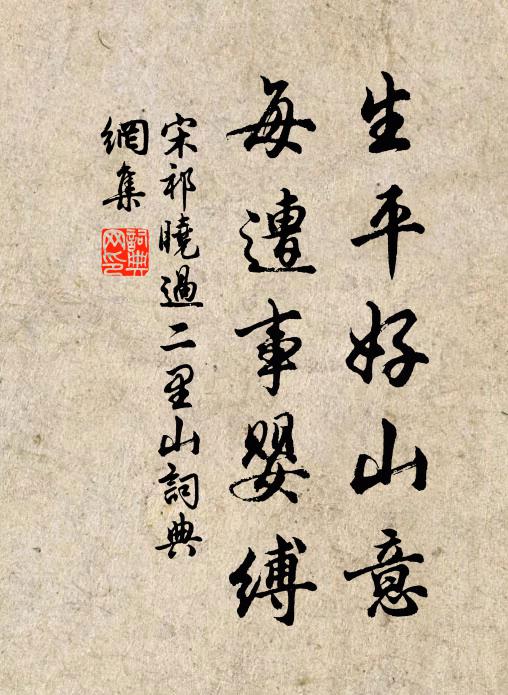 生平好山意
每遭事嬰縛
宋祁曉過二里山詞典
網集
詞典
网印